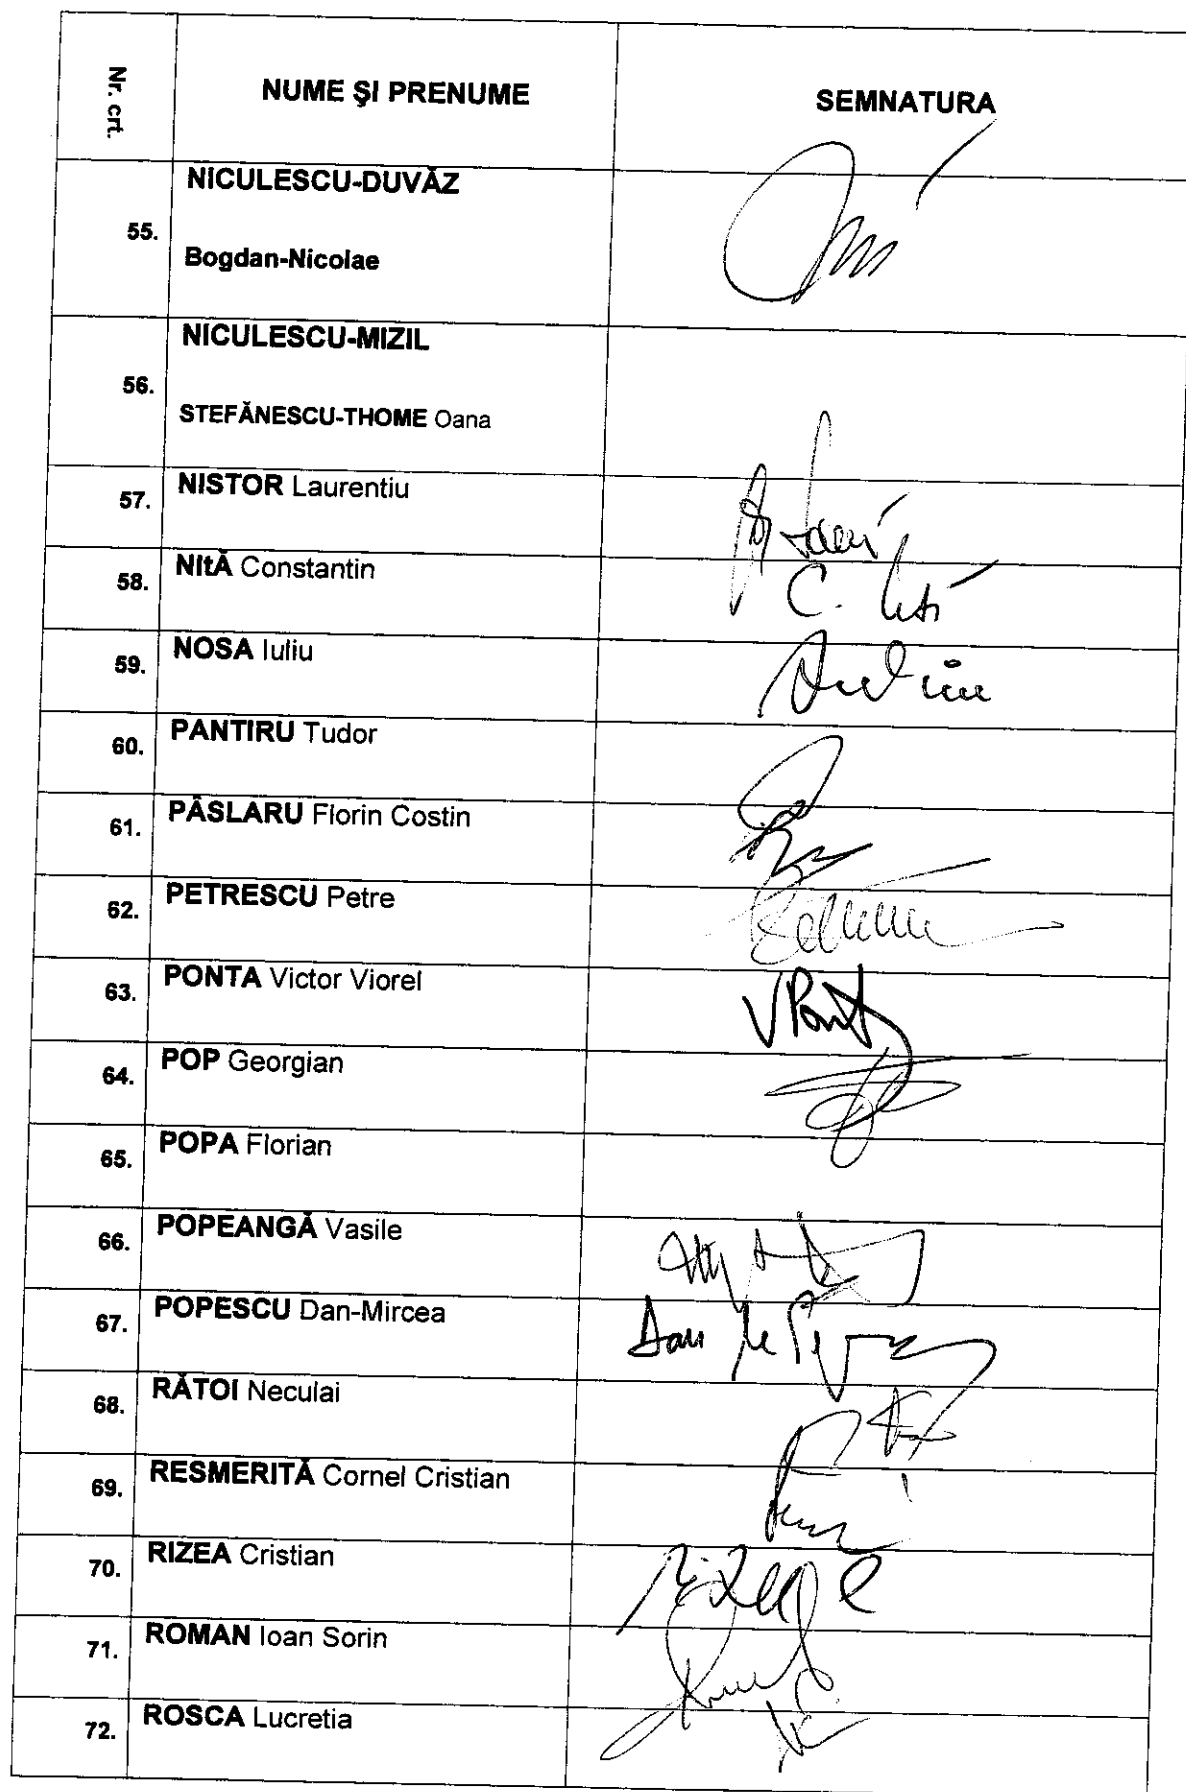 Nr. crt. NUME ŞI PRENUME SEMNATURA
NICULESCU-DUVĂZ
55.
Bogdan-Nicolae
NICULESCU-MIZIL
56.
STEFĂNESCU-THOME Oana
57. NISTOR Laurentiu
58. NItĂ Constantin
C.
59. NOSA Iuliu
60. PANTIRU Tudor
61. PÂSLARU Florin Costin
62. PETRESCU Petre
63. PONTA Victor Viorel
VPonta
64. POP Georgian
65. POPA Florian
66. POPEANGĂ Vasile
67. POPESCU Dan-Mircea
Dan
68. RĂTOI Neculai
69. RESMERITĂ Cornel Cristian
70. RIZEA Cristian
71. ROMAN Ioan Sorin
72. ROSCA Lucretia